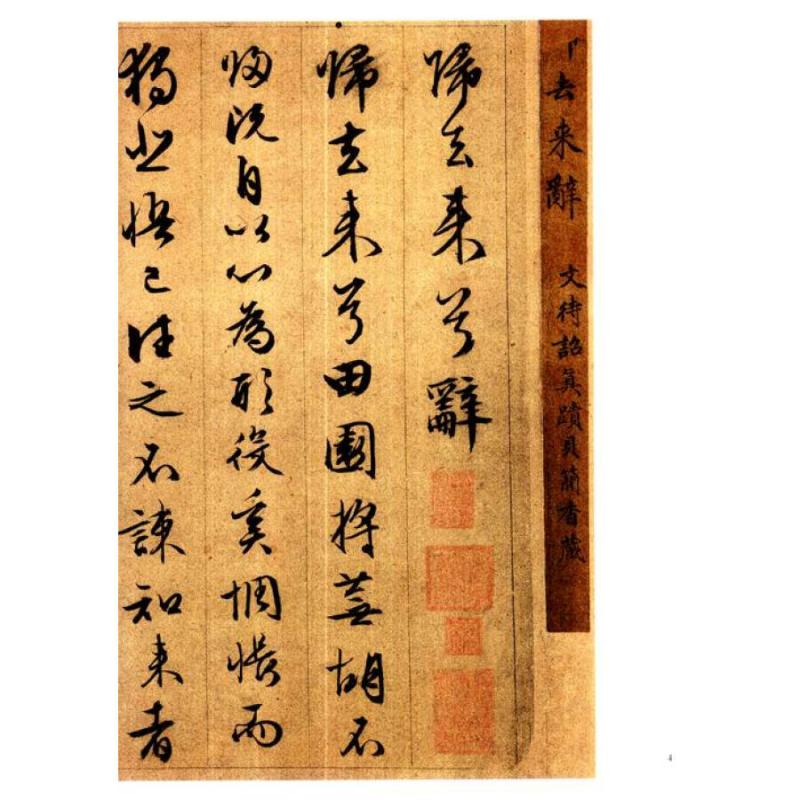 去来辭 文待詔真蹟貝簡香藏
歸去来兮辭
歸去来兮田園將蕪胡不
歸既自以心為形役奚惆悵而
獨悲悟已往之不諫知来者
4